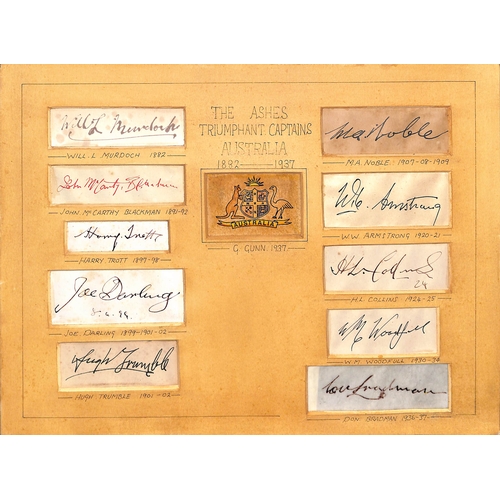 THE ASHES
TRIUMPHANT CAPTAINS
AUSTRALIA
1882 — 1937
AUSTRALIA
G. GUNN. 1937
Will L Murdoch
WILL. L MURDOCH 1882
John McCarthy Blackham
JOHN. McCARTHY BLACKMAN 1891-92
Harry Trott
HARRY TROTT 1897-98
Joe Darling
JOE. DARLING 1899-1901-02
Hugh Trumble
HUGH TRUMBLE 1901-02
M A Noble
M.A. NOBLE. 1907-08-1909
W W Armstrong
W.W. ARMSTRONG 1920-21
H L Collins
H.L. COLLINS 1924-25
W M Woodfull
W.M. WOODFULL 1930-34
Don Bradman
DON. BRADMAN 1936-37